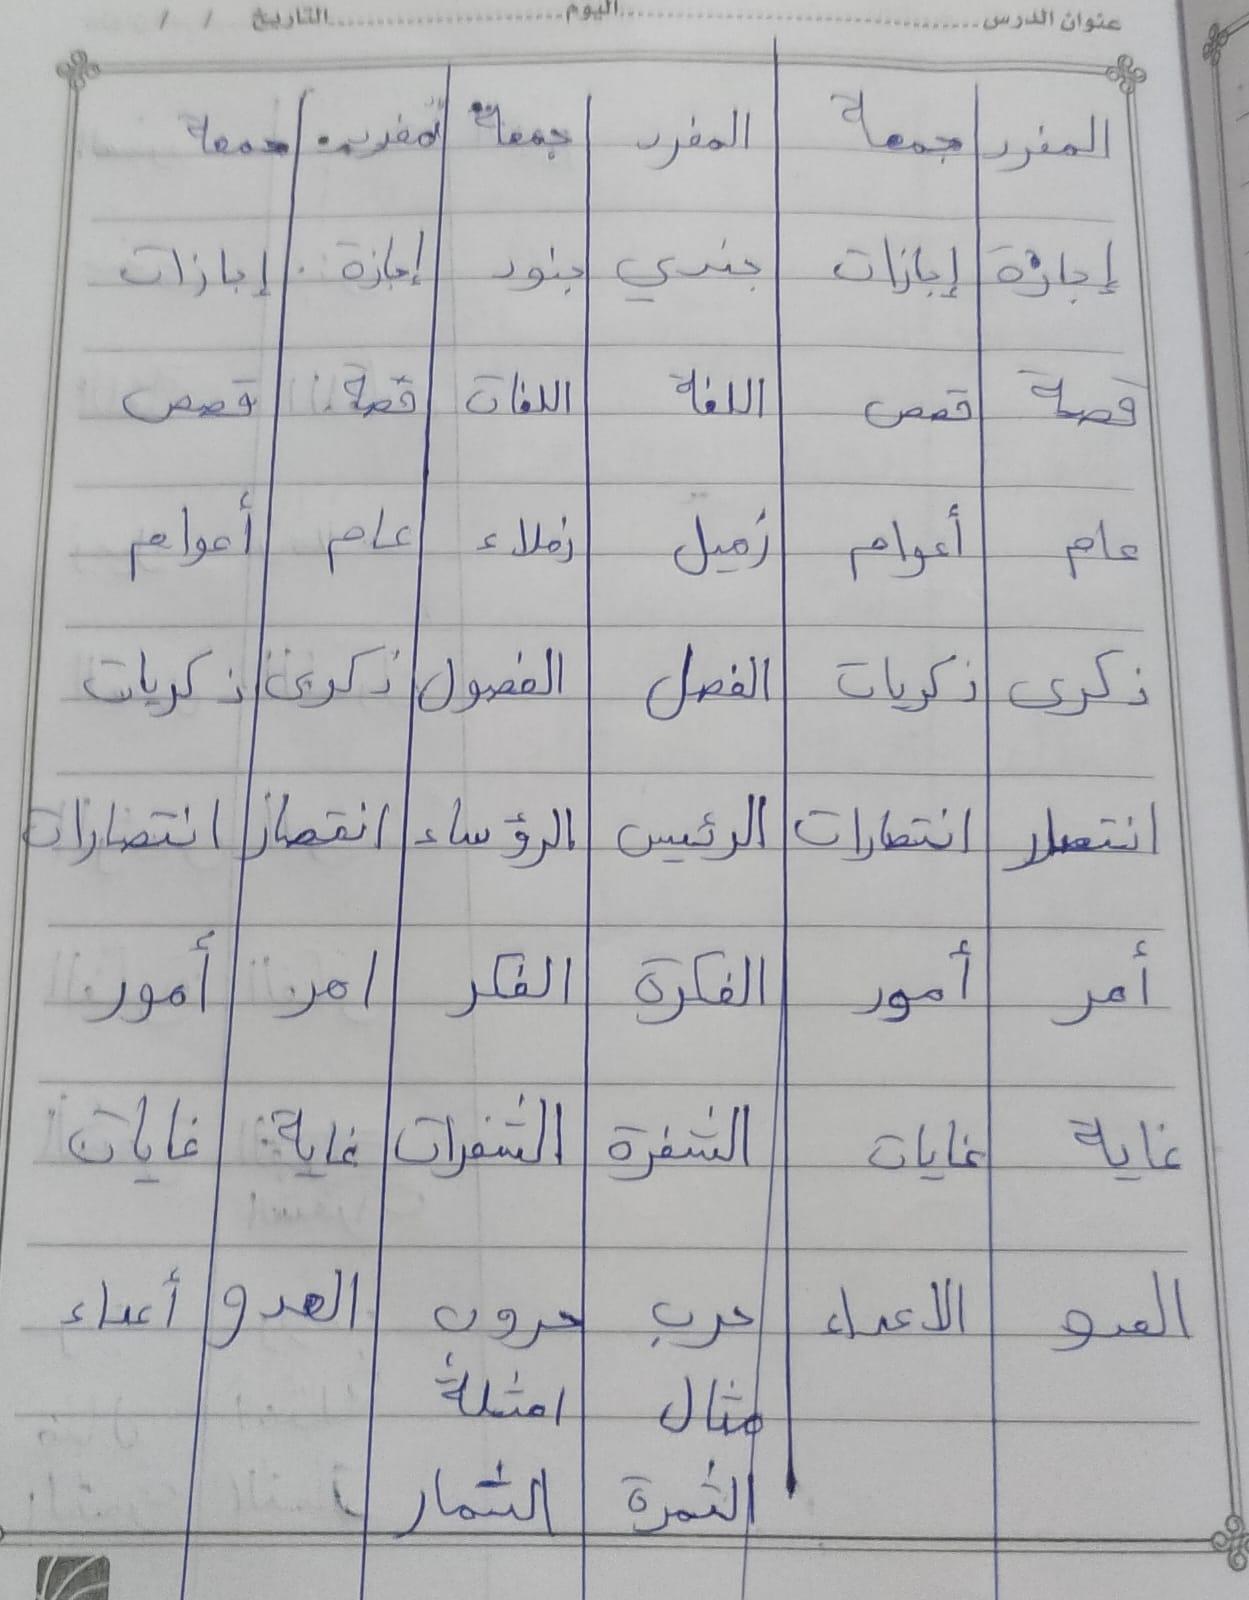 عنوان الدرس ............ اليوم ............ التاريخ / /
المفرد جمعة المفرد جمعة المفرد جمعة
إجازة إجازات جندي جنود إجازة إجازات
قصة قصص اللغة اللغات قصة قصص
عام أعوام زميل زملاء عام أعوام
ذكرى ذكريات الفصل الفصول ذكرى ذكريات
انتصار انتصارات الرئيس الرؤساء انتصار انتصارات
أمر أمور الفكرة الفكر امر أمور
غاية غايات الشفرة الشفرات غاية غايات
العدو الاعداء حرب حروب العدو أعداء
مثال امثلة
الثمرة الثمار